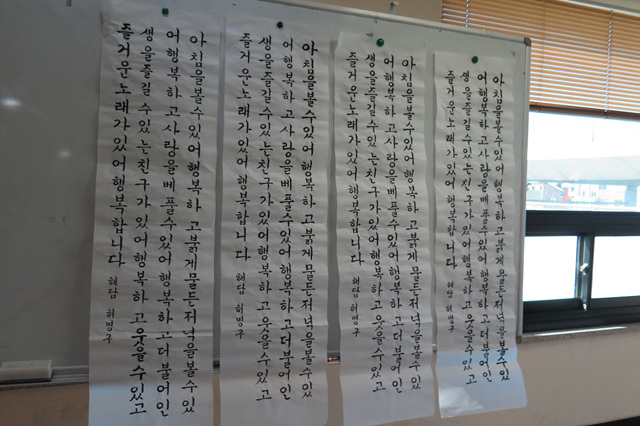 아침을볼수있어행복하고붉게물든저녁을볼수있
어행복하고사랑을베풀수있어행복하고더불어인
생을즐길수있는친구가있어행복하고웃을수있고
즐거운노래가있어행복합니다 해담 허명구
아침을볼수있어행복하고붉게물든저녁을볼수있
어행복하고사랑을베풀수있어행복하고더불어인
생을즐길수있는친구가있어행복하고웃을수있고
즐거운노래가있어행복합니다 해담 허명구
아침을볼수있어행복하고붉게물든저녁을볼수있
어행복하고사랑을베풀수있어행복하고더불어인
생을즐길수있는친구가있어행복하고웃을수있고
즐거운노래가있어행복합니다 해담 허명구
아침을볼수있어행복하고붉게물든저녁을볼수있
어행복하고사랑을베풀수있어행복하고더불어인
생을즐길수있는친구가있어행복하고웃을수있고
즐거운노래가있어행복합니다 해담 허명구